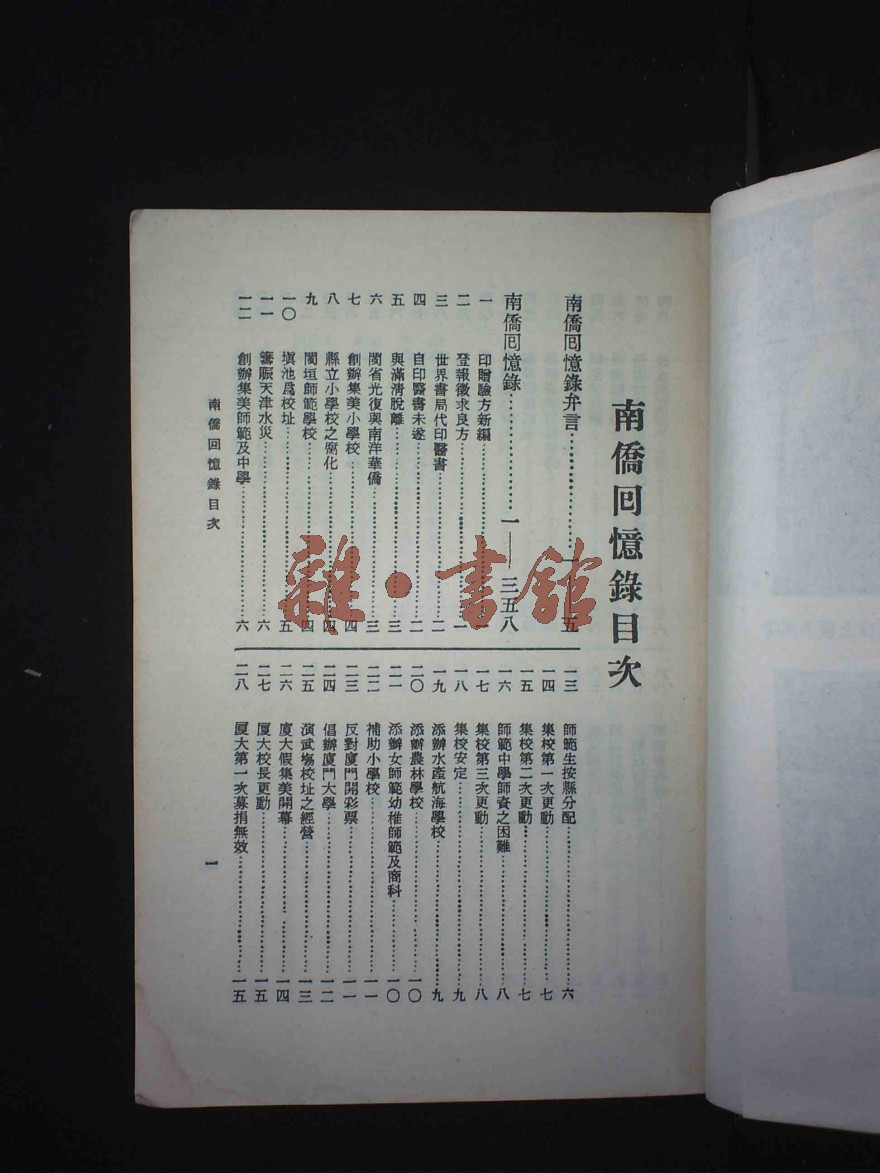 南僑回憶錄目次
南僑回憶錄弁言……一——五
南僑回憶錄……一——三五八
一 印贈驗方新編……一
二 登報徵求良方……一
三 世界書局代印醫書……二
四 自印醫書未遂……二
五 與滿清脫離……三
六 閩省光復與南洋華僑……三
七 創辦集美小學校……四
八 縣立小學校之腐化……四
九 閩垣師範學校……四
一〇 填池爲校址……五
一一 籌賑天津水災……六
一二 創辦集美師範及中學……六
一三 師範生按縣分配……六
一四 集校第一次更動……七
一五 集校第二次更動……七
一六 師範中學師資之困難……八
一七 集校第三次更動……八
一八 集校安定……九
一九 添辦水產航海學校……九
二〇 添辦農林學校……一〇
二一 添辦女師範幼稚師範及商科……一〇
二二 補助小學校……一一
二三 反對廈門開彩票……一一
二四 倡辦廈門大學……一二
二五 演武塲校址之經營……一三
二六 廈大假集美開幕……一四
二七 廈大校長更動……一五
二八 厦大第一次募捐無效……一五
南僑回憶錄目次
一
雜·書館